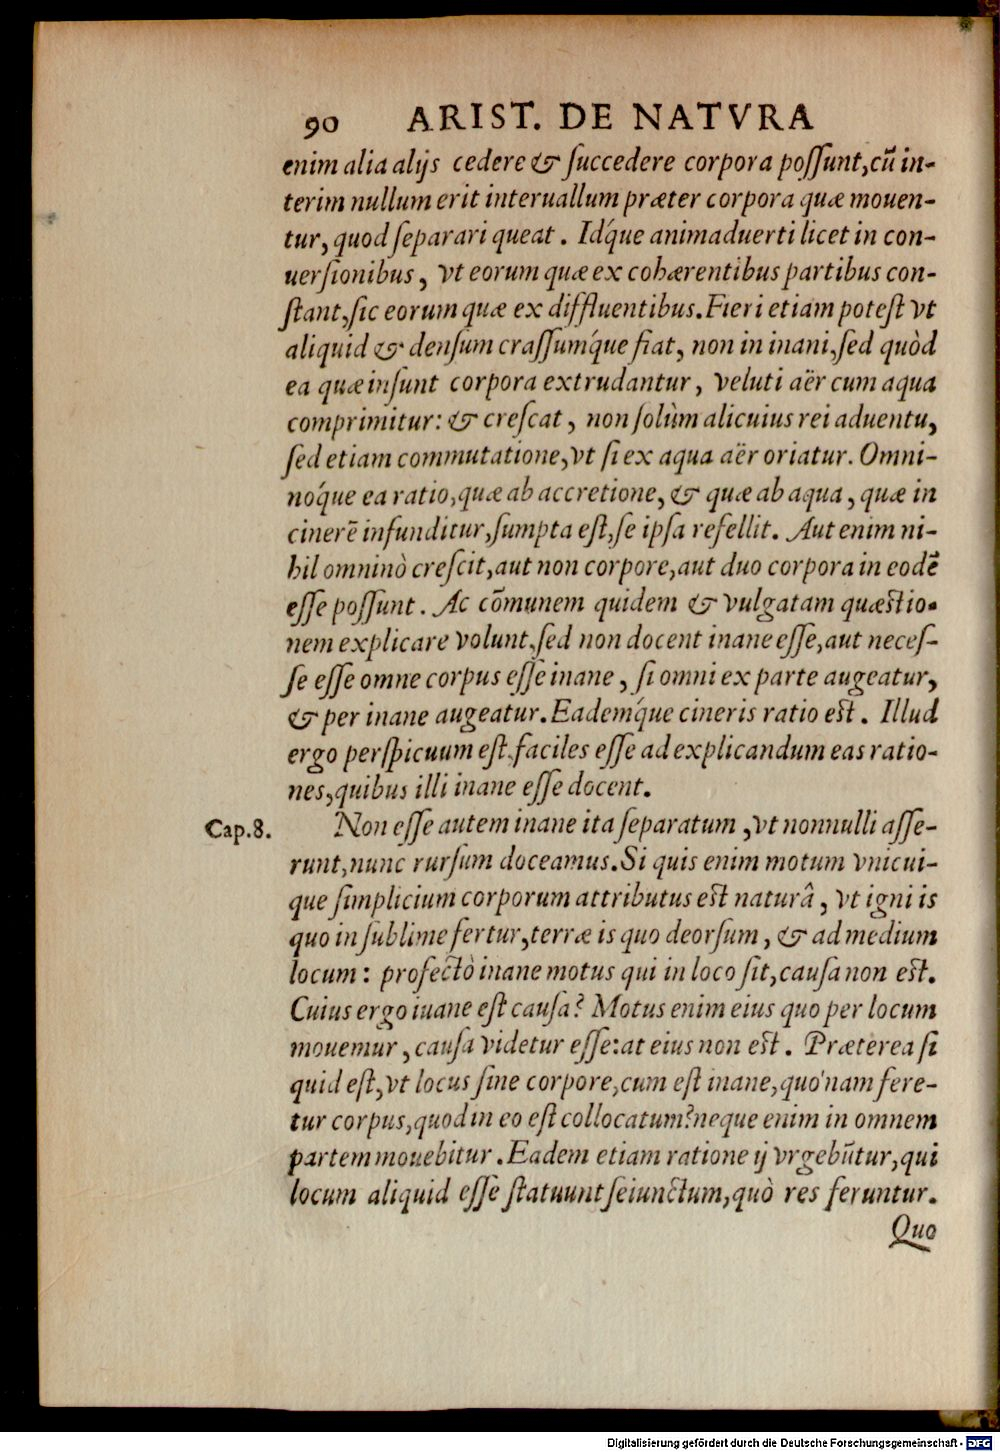 90 ARIST. DE NATVRA
enim alia alijs cedere & succedere corpora possunt, cũ in-
terim nullum erit interuallum præter corpora quæ mouen-
tur, quod separari queat. Id́que animaduerti licet in con-
uersionibus, vt eorum quæ ex cohærentibus partibus con-
stant, sic eorum quæ ex diffluentibus. Fieri etiam potest vt
aliquid & densum crassumq́ue fiat, non in inani, sed quòd
ea quæ insunt corpora extrudantur, veluti aër cum aqua
comprimitur: & crescat, non solùm alicuius rei aduentu,
sed etiam commutatione, vt si ex aqua aër oriatur. Omni-
noq́ue ea ratio, quæ ab accretione, & quæ ab aqua, quæ in
cinerẽ infunditur, sumpta est, se ipsa refellit. Aut enim ni-
hil omninò crescit, aut non corpore, aut duo corpora in eodẽ
esse possunt. Ac cõmunem quidem & vulgatam quæstio-
nem explicare volunt, sed non docent inane esse, aut neces-
se esse omne corpus esse inane, si omni ex parte augeatur,
& per inane augeatur. Eademq́ue cineris ratio est. Illud
ergo perspicuum est, faciles esse ad explicandum eas ratio-
nes, quibus illi inane esse docent.
Cap. 8. Non esse autem inane ita separatum, vt nonnulli asse-
runt, nunc rursum doceamus. Si quis enim motum vnicui-
que simplicium corporum attributus est naturâ, vt igni is
quo in sublime fertur, terræ is quo deorsum, & ad medium
locum: profectò inane motus qui in loco sit, causa non est.
Cuius ergo iuane est causa? Motus enim eius quo per locum
mouemur, causa videtur esse: at eius non est. Præterea si
quid est, vt locus sine corpore, cum est inane, quo'nam fere-
tur corpus, quod in eo est collocatum? neque enim in omnem
partem mouebitur. Eadem etiam ratione ij vrgebũtur, qui
locum aliquid esse statuunt seiunctum, quò res feruntur.
Quo
Digitalisierung gefördert durch die Deutsche Forschungsgemeinschaft - DFG